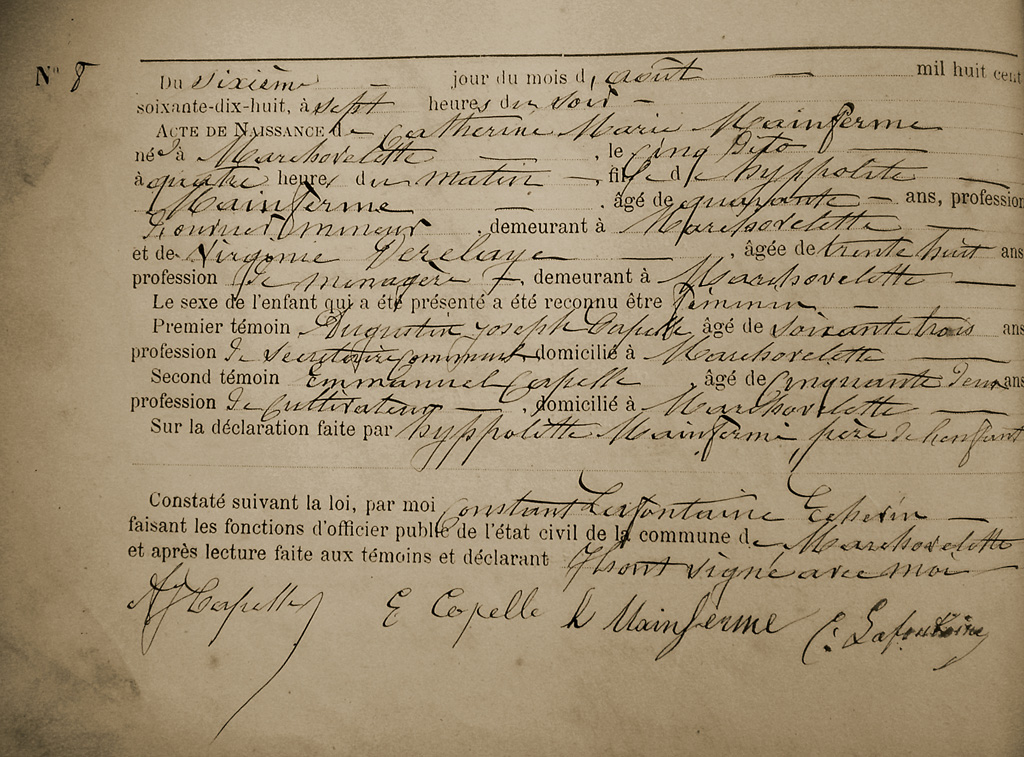 N° 8
Du sixième jour du mois d'août mil huit cent
soixante-dix-huit, à sept heures du soir
ACTE DE NAISSANCE de Catherine Marie Mainferme
née à Marchovelette, le cinq dito
à quatre heures du matin, fille de hyppolite
Mainferme, âgé de quarante ans, profession
Journ. mineur, demeurant à Marchovelette
et de Virginie Derelaye, âgée de trente huit ans
profession de ménagère, demeurant à Marchovelette
Le sexe de l'enfant qui a été présenté a été reconnu être féminin
Premier témoin Augustin Joseph Capelle, âgé de soixante trois ans
profession de secrétaire communal domicilié à Marchovelette
Second témoin Emmanuel Capelle, âgé de cinquante deux ans
profession de cultivateur, domicilié à Marchovelette
Sur la déclaration faite par hyppolitte Mainfermé, père de l'enfant
Constaté suivant la loi, par moi Constant Lafontaine Echevin
faisant les fonctions d'officier public de l'état civil de la commune de Marchovelette
et après lecture faite aux témoins et déclarant Ils ont signé avec moi
AJ Capelle E Capelle h Mainferme C. Lafontaine